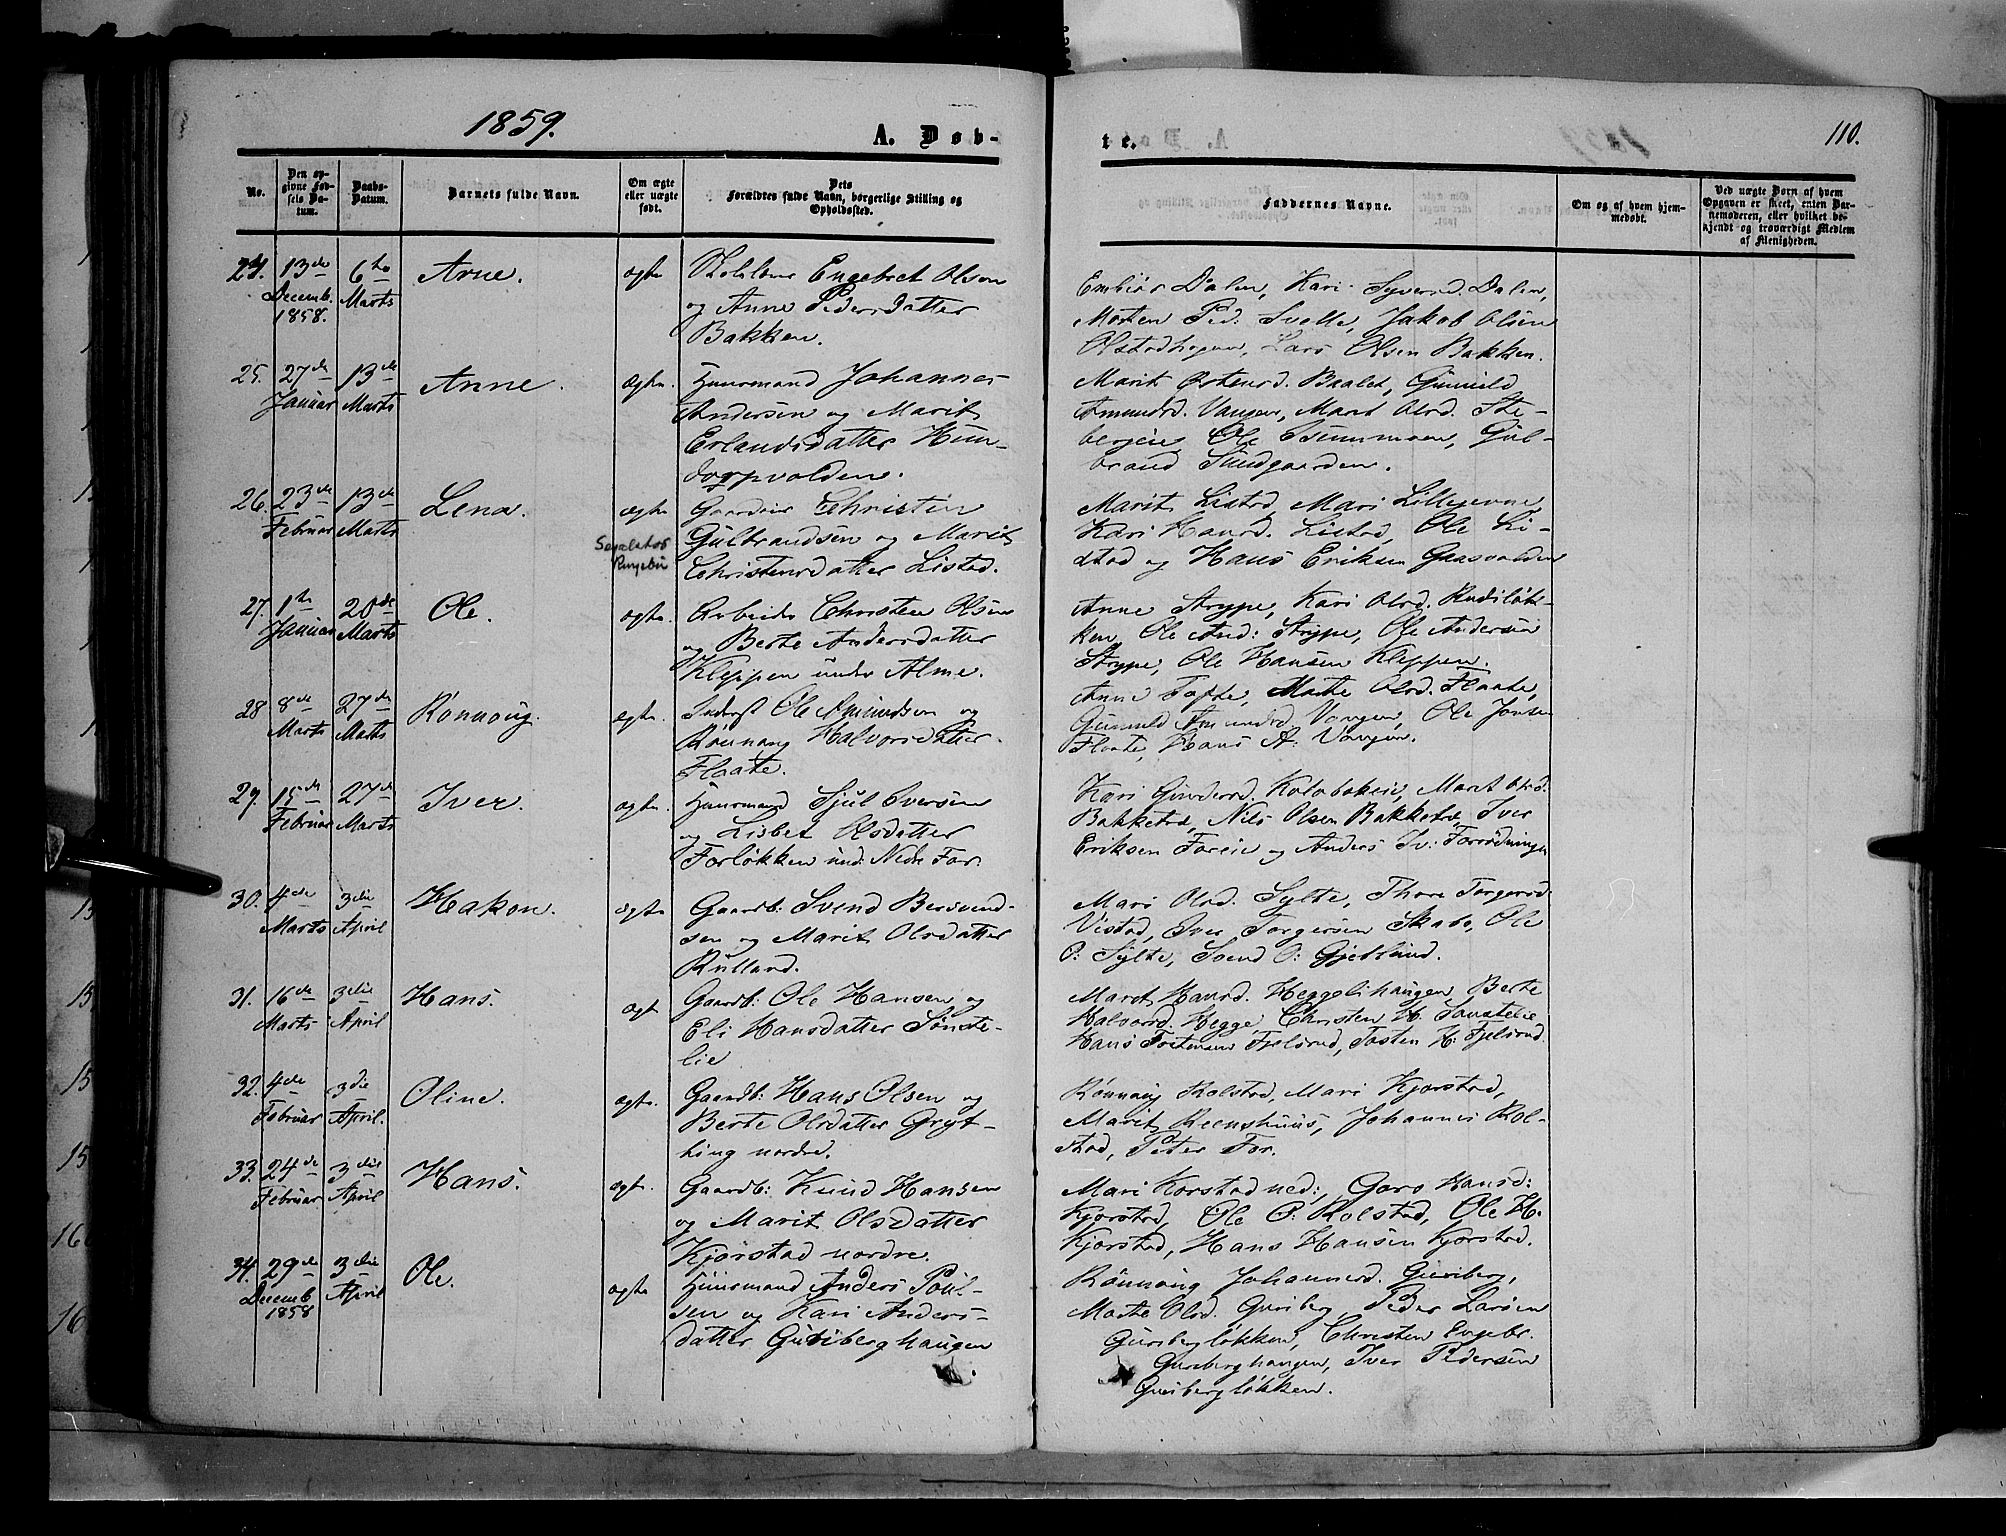 1859.
A. Døb-
te.
110.
No.
Den op-
givne Fød-
sels Da-
tum.
Daabs-
Datum.
Barnets fulde Navn.
Om ægte
eller uægte
født.
Dets
Forældres fulde Navn, borgerlige Stilling og
Opholdssted.
Faddernes Navne.
Om og af hvem hjem-
medøbt.
Ved uægte Born af hvem
Opgaven er skeet, enten Bar-
nemoderen, eller hvilket be-
kjendt og troværdigt Medlem
af Menigheden.
24. 13de Decemb. 1858. 6te Marts Arne. ægte
Engebret Olsen
og Anne Pedersdatter
Bakken.
Embjør Dalen, Kari Syversd. Dalen,
Morten Ped: Svelle, Jakob Olsen
Olstadhagen, Lars Olsen Bakken.
25. 27de Januar 13de Marts Anne. ægte.
Huusmand Johannes
Andersen og Marit
Erlandsdatter Hun-
dorpvolden.
Marit Baalet, Gunild
Amundsd. Vangen, Marit Olsd. Ste-
bergeie, Ole Gul-
brand Sundgaarden.
26. 23de Februar 13de Marts Lena. ægte
Gaardeier Christen
Gulbrandsen og Marit
Christensdatter Listad.
Ringebu
Marit Listad, Mari
Kari Hansd. Listad, Ole Li-
stad og Hans Eriksen
27. 1te Januar 20de Marts Ole. ægte.
Arbeider Christen Olsen
og Berte Andersdatter
Kleppen under Alme.
Anne Strype, Kari Olsd. Rudsløk-
ken, Ole And: Strype, Ole Andersen
Strype, Ole Hansen Kleppen.
28 8de Marts 27de Marts Rønnoug. ægte.
Inderst Ole Amundsen og
Rønnoug Halvorsdatter
Flaate.
Anne Tofte, Marte Olsd. Flaate,
Gunild Amundsd. Vangen, Ole Jonsen
Flaate, Hans A: Vangen.
29. 15de Februar 27de Marts Iver. ægte.
Huusmand Sjul Iversen
og Lisbet Olsdatter
Forløkken und: Nedre For.
Kari Gundersd. Marit Olsd.
Bakkestad, Nils Olsen Bakkestad, Iver
Eriksen Foreie og Anders Iv:
30. 4de Marts 3die April Hakon. ægte
Gaardb: Svend Bersvend-
sen og Marit Olsdatter
Rulland.
Mari Olsd. Sylte, Thore Torgersd:
Vistad, Iver Torgersen Skabo, Ole
O: Sylte, Svend O: Gjetlund.
31. 16de Marts 3die April Hans. ægte
Gaardb: Ole Hansen og
Eli Hansdatter Sønste-
lie
Marit Hansd. Heggelihaugen, Berte
Halvorsd. Hegge, Christen H. Sønstelie
Hans Tostensen Fjelsrud, Tosten H: Fjelsrud.
32. 4de Februar 3die April. Oline. ægte.
Gaardb: Hans Olsen og
Berte Olsdatter Gryt-
ting nordre.
Rønnoug Kolstad, Mari Kjorstad,
Marit Johannes Kol-
stad, Peter For.
33. 24de Februar 3die April Hans. ægte.
Gaardb: Knud Hansen
og Marit Olsdatter
Kjorstad nordre.
Mari Korstad ned:, Goro Hansd:
Kjorstad, Ole P: Kolstad, Ole H.
Kjorstad, Hans Hansen Kjorstad.
34. 29de Decemb 1858 3die April Ole. ægte
Huusmand Anders Poul-
sen og Kari Anders-
datter Guriberghaugen
Rønnoug Johannesd. Guriberg,
Marte Olsd. Guriberg, Peder Larsen
Guribergløkken, Christen Engebr.
Guriberghaugen, Iver Pedersen
Guribergløkken.